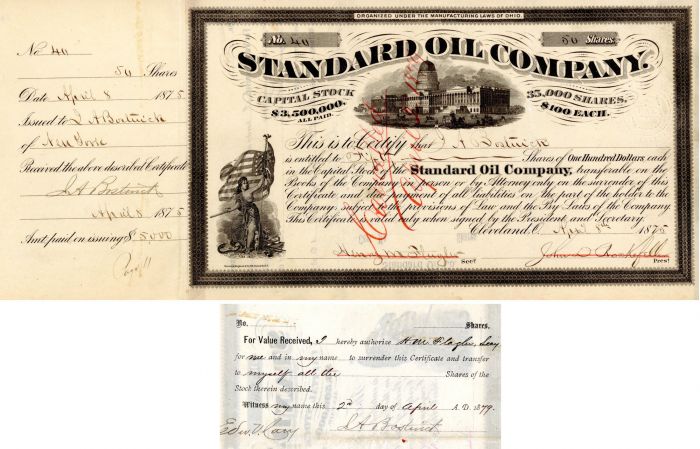 No 40
50 Shares
Date April 8 1875
Issued to J A Bostwick
of New York
Received the above described Certificate
J A Bostwick
April 8 1875
Amt paid on issuing $ 5,000
ORGANIZED UNDER THE MANUFACTURING LAWS OF OHIO.
No. 40
50 Shares.
STANDARD OIL COMPANY.
CAPITAL STOCK
$3,500,000.
ALL PAID.
35,000 SHARES,
$100 EACH.
This is to Certify that J A Bostwick
is entitled to Fifty Shares of One Hundred Dollars, each
in the Capital Stock of the Standard Oil Company, transferable on the
Books of the Company in person or by Attorney only on the surrender of
this Certificate and the payment of all liabilities on the part of the holder to the
Company, subject to the provisions of Law and the By Laws of the Company.
This Certificate is valid only when signed by the President and Secretary.
Cleveland, O. April 8th 1875
Henry M. Flagler Secy
John D Rockefeller Prest
No. Shares.
For Value Received, I hereby authorize H. M. Flagler, Secy
for me and in my name to surrender this Certificate and transfer
to myself all the Shares of the
Stock therein described.
Witness my name this 2nd day of April A. D. 1879.
J A Bostwick